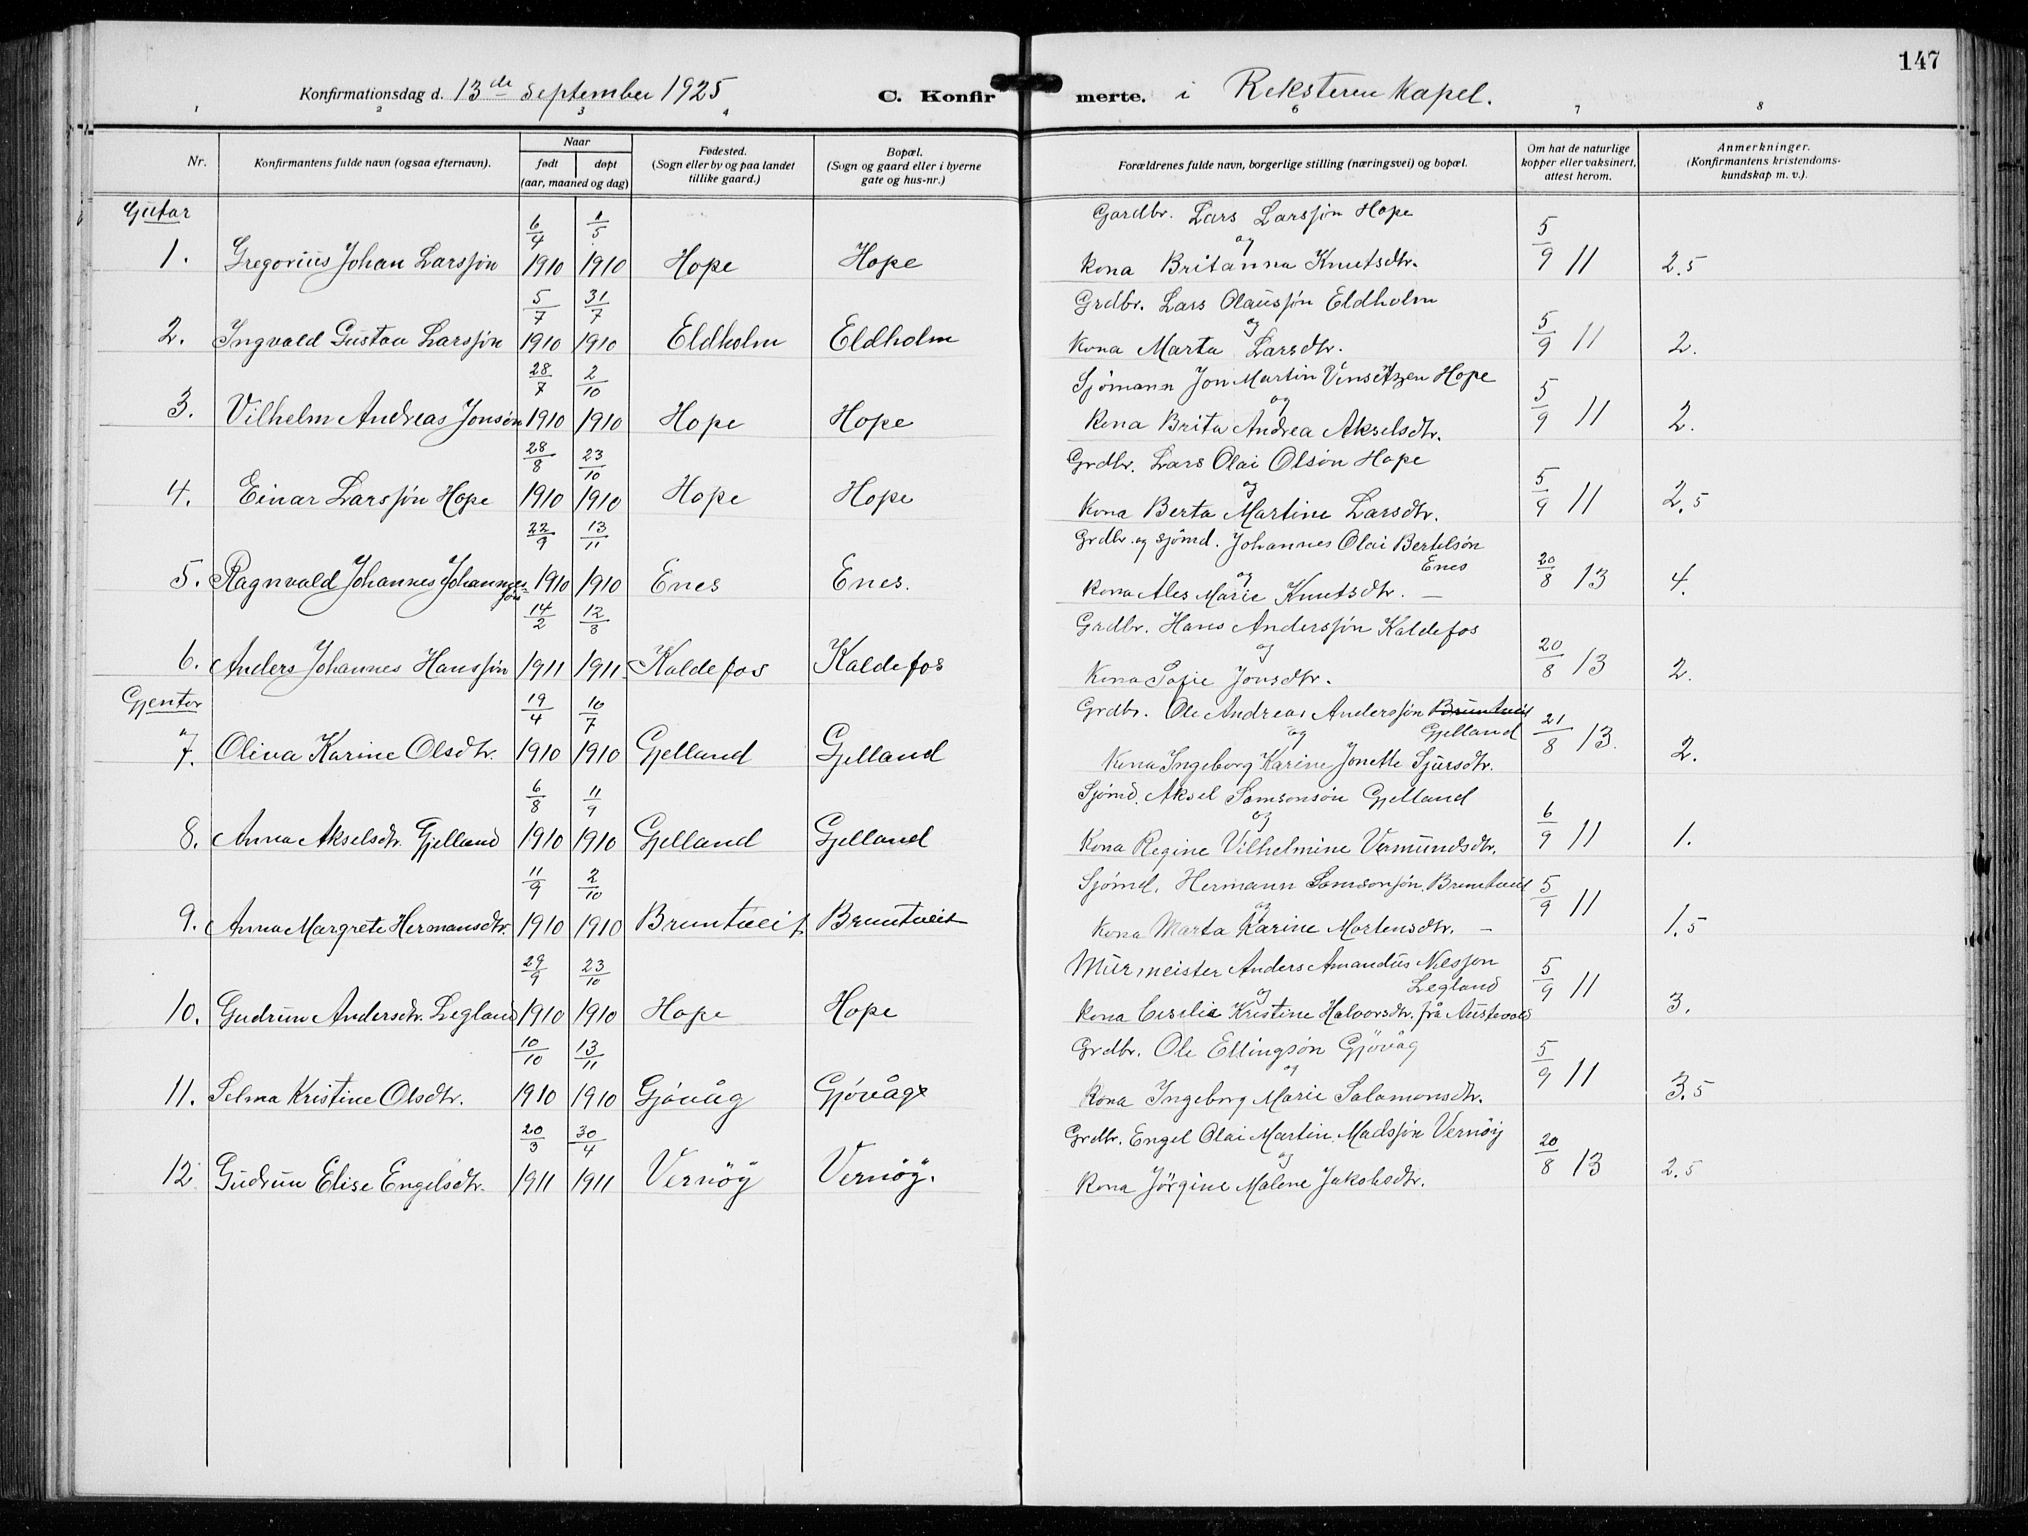 147
Konfirmationsdag d. 13de september 1925 C. Konfirmerte. i Reksteren Kapel.
1 2 3 4 6 7 8
Nr. Konfirmantens fulde navn (ogsaa efternavn). Naar født døpt (aar, maaned og dag) Fødested. (Sogn eller by og paa landet tillike gaard.) Bopæl. (Sogn og gaard eller i byerne gate og hus-nr.) Forældrenes fulde navn, borgerlige stilling (næringsvei) og bopæl. Om hat de naturlige kopper eller vaksinert, attest herom. Anmerkninger. (Konfirmantens kristendomskundskap m. v.).
Gutar
1. Gregorius Johan Larssøn 6/4 1910 1/5 1910 Hope Hope Gardbr. Lars Larssøn Hope og Kona Britanna Knutsdtr. 5/9 11 2.5
2. Ingvald Gustav Larssøn 5/7 1910 31/7 1910 Eldholm Eldholm Grdbr. Lars Olaussøn Eldholm og Kona Marta Larsdtr. 5/9 11 2.
3. Vilhelm Andreas Jonsøn 28/7 1910 2/10 1910 Hope Hope Sjømann Jon Martin Hope og Kona Brita Andrea Akselsdtr. 5/9 11 2.
4. Einar Larssøn Hope 28/8 1910 23/10 1910 Hope Hope Grdbr. Lars Olai Olsøn Hope og Kona Berta Martine Larsdtr. 5/9 11 2,5
5. Ragnvald Johannes Johannessøn 22/9 1910 13/11 1910 Enes Enes. Grdbr. og sjømd. Johannes Olai Bertelsøn Enes og Kona Ales Marie Knutsdtr. — 20/8 13 4.
6. Anders Johannes Hanssøn 14/2 1911 12/3 1911 Kaldefos Kaldefos Grdbr. Hans Anderssøn Kaldefos og Kona Sofie Jonsdtr. 20/8 13 2.
Gjentor
7. Oliva Karine Olsdtr. 19/4 1910 10/7 1910 Gjelland Gjelland Grdbr. Ole Andreas Anderssøn Bruntveit Gjelland og Kona Ingeborg Karine Jonette Sjursdtr. 21/8 13. 2.
8. Anna Akselsdtr. Gjelland 6/8 1910 11/9 1910 Gjelland Gjelland Sjømd. Aksel Samsonsøn Gjelland og Kona Regine Vilhelmine Vermundsdtr. 6/9 11 1.
9. Anna Margrete Hermansdtr. 11/9 1910 2/10 1910 Bruntveit Bruntveit Sjømd. Hermann Samsonsøn Bruntveit og Kona Marta Karine Mortensdtr. — 5/9 11 1.5
10. Gudrun Andersdtr. Legland 29/9 1910 23/10 1910 Hope Hope Murmeister Anders Amandus Nilssøn Legland og Kona Cecilie Kristine Halvorsdtr. frå Austevold 5/9 11 3.
11. Selma Kristine Olsdtr. 10/10 1910 13/11 1910 Gjøvåg Gjøvåg Grdbr. Ole Ellingsøn Gjøvåg og Kona Ingeborg Marie Salamonsdtr. 5/9 11 3.5
12. Gudrun Elise Engelsdtr. 20/3 1911 30/4 1911 Vernøy Vernøy. Grdbr. Engel Olai Martin Madssøn Vernøy og Kona Jørgine Malene Jakobsdtr. 20/8 13 2.5